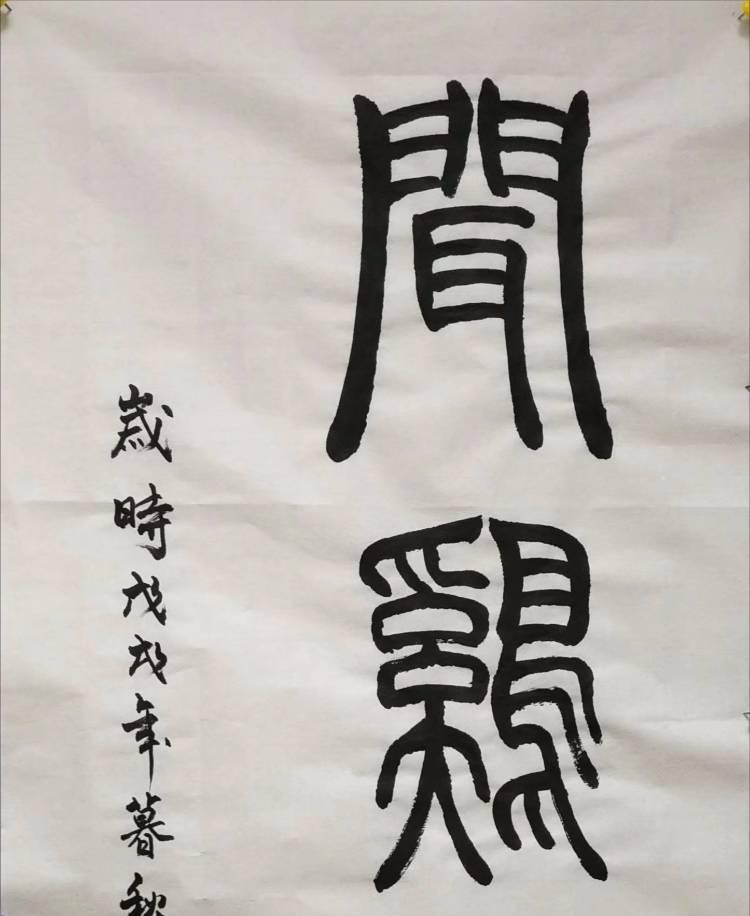 聞鷄
歲時戊戌年暮秋